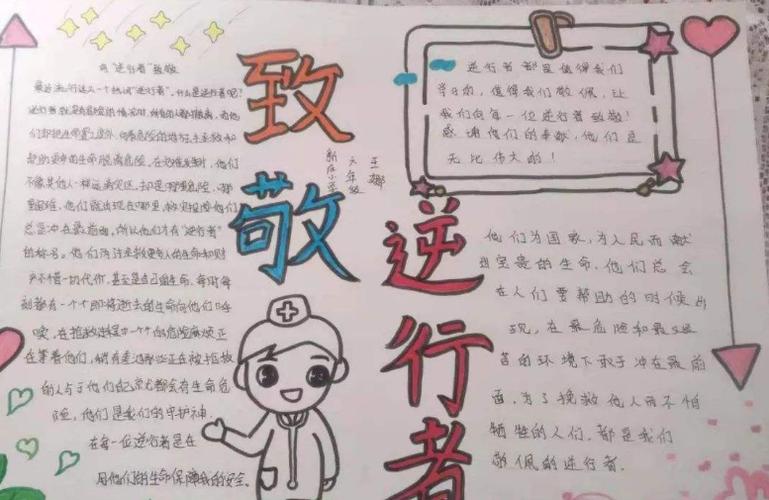 向"逆行者"致敬
最近流行这么一个热词"逆行者"。什么是逆行者呢?
逆行者就是有危险的情况时,所有的人都撤离,而他
们却把生命置之度外,向着危险的地方,去拯救和
更多的生命脱离危险,在灾难发生时,他们
不像其他人一样远离灾区,却是危险,哪
里困难,他们就出现在哪里,救灾抢险他们
总是冲在最前面,所以他们才有"逆行者"
的称号。他们为了拯救更多人的生命和财
产不惜一切代价,甚至是自己的生命,每时每
刻都有一个个即将逝去的生命向他们呼
唤,在抢救过程中一个个的危险麻烦正
在等着他们,稍有差池那些正在被拯救
的人与他们自己都会有生命危
险,他们是我们的守护神。
在每一位逆行者是在
用他们的生命保障我的安全。
致敬
逆行者
新庄小学
六年级
王娜
逆行者都是值得我们
学习的,值得我们敬佩,让
我们向每一位逆行者致敬!
感谢他们的奉献,他们是
无比伟大的!
他们为国家,为人民而献
出宝贵的生命,他们总会
在人们需要帮助的时候出
现,在最危险和最艰
苦的环境下敢于冲在最前
面,为了挽救他人而不怕
牺牲的人们,都是我们
敬佩的逆行者.